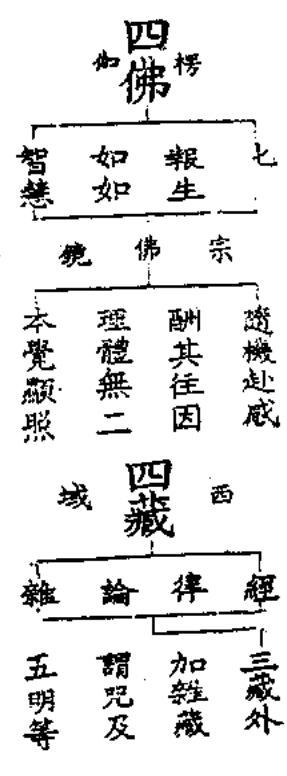 四佛
楞伽
報生
如如
智慧
佛
宗鏡
隨機赴感
酬其往因
理體無二
本覺顯照
四藏
西域
經
律
論
雜
三藏外
加雜藏
謂咒及
五明等